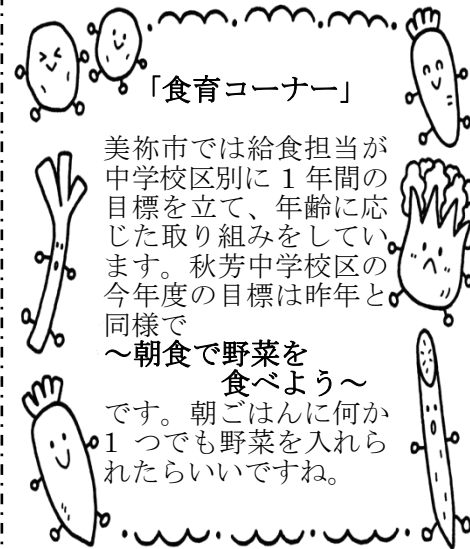 「食育コーナー」
美祢市では給食担当が
中学校区別に 1 年間の
目標を立て、年齢に応
じた取り組みをしてい
ます。秋芳中学校区の
今年度の目標は昨年と
同様で
～朝食で野菜を
食べよう～
です。朝ごはんに何か
1 つでも野菜を入れら
れたらいいですね。